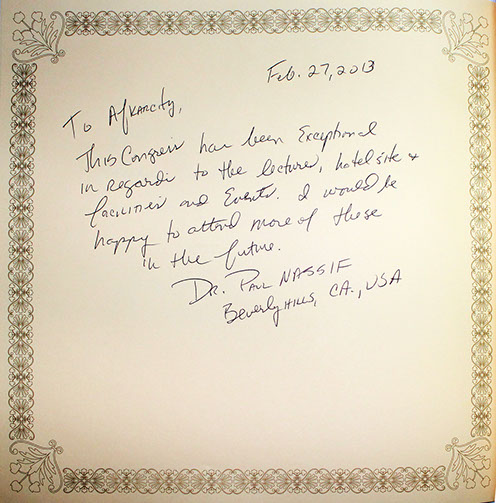 Feb. 27, 2013
To Afkarcity,
This Congress has been Exceptional
in regards to the lectures, hotel site +
facilities and Events. I would be
happy to attend more of these
in the future.
Dr. Paul NASSIF
Beverly Hills, CA., USA